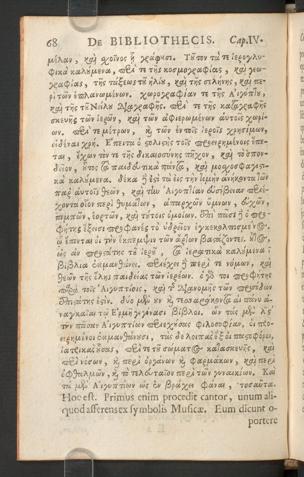 68 DE BIBLIOTHECIS. Cap.IV.
μέλαν, καὶ σχοῖνος ᾗ γράφουσι. Τοῦτον τά τε ἱερογλυ-
φικὰ καλούμενα, περί τε τῆς κοσμογραφίας, καὶ γεω-
γραφίας, τῆς τάξεως τοῦ ἡλίου, καὶ τῆς σελήνης, καὶ πε-
ρὶ τῶν ἐπλανωμένων. χωρογραφίαν τε τῆς Αἰγύπτου,
καὶ τῆς τοῦ Νείλου διαγραφῆς. περί τε τῆς καταγραφῆς
σκευῆς τῶν ἱερῶν, καὶ τῶν ἀφιερωμένων αὐτοῖς χωρί-
ων. περί τε μέτρων, καὶ τῶν ἐν τοῖς ἱεροῖς χρησίμων,
εἰδέναι χρή. Ἔπειτα ὁ στολιστὴς τοῖς προειρημένοις ἕπε-
ται, ἔχων τόν τε τῆς δικαιοσύνης πῆχυν, καὶ τὸ σπον-
δεῖον, οὗτος τὰ παιδευτικὰ πάντα, καὶ μοσχοσφαγιστι-
κὰ καλούμενα. δέκα δέ ἐστι τὰ εἰς τὴν τιμὴν ἀνήκοντα τῶν
παρ' αὐτοῖς θεῶν, καὶ τὴν Αἰγυπτίαν εὐσέβειαν περιέ-
χοντα οἷον περὶ θυμάτων, ἀπαρχῶν ὕμνων, εὐχῶν,
πομπῶν, ἑορτῶν, καὶ τούτοις ὁμοίων. Ἐπὶ πᾶσι δὲ ὁ προ-
φήτης ἔξεισι προφανὲς τὸ ὑδρεῖον ἐγκεκολπισμένος,
ᾧ ἕπονται οἱ τὴν ἔκπεμψιν τῶν ἄρτων βαστάζοντες. οὗτος,
ὡς ἂν προστάτης τοῦ ἱεροῦ, τὰ ἱερατικὰ καλούμενα ι
βιβλία ἐκμανθάνει. περιέχει δὲ περί τε νόμων, καὶ
θεῶν τῆς ὅλης παιδείας τῶν ἱερέων. ὁ γάρ τοι προφήτης
παρὰ τοῖς Αἰγυπτίοις, καὶ τῆς διανομῆς τῶν προσόδων
ἐπιστάτης ἐστίν. δύο μὲν οὖν καὶ τεσσαράκοντα αἱ πάνυ ἀ-
ναγκαῖαι τῷ Ἑρμῇ γεγόνασι βίβλοι. ὧν τὰς μὲν λϛ
τὴν πᾶσαν Αἰγυπτίων περιεχούσας φιλοσοφίαν, οἱ προ-
ειρημένοι ἐκμανθάνουσι, τὰς δὲ λοιπὰς ἓξ οἱ παστοφόροι,
ἰατρικὰς οὔσας, περί τε τῆς τοῦ σώματος κατασκευῆς, καὶ
περὶ νόσων, καὶ περὶ ὀργάνων καὶ φαρμάκων, καὶ περὶ
ὀφθαλμῶν, καὶ τὸ τελευταῖον περὶ τῶν γυναικείων. Καὶ
τὰ μὲν Αἰγυπτίων ὡς ἐν βραχεῖ φάναι, τοσαῦτα.
Hoc est. Primus enim procedit cantor, unum ali-
quod afferens ex symbolis Musicæ. Eum dicunt o-
portere